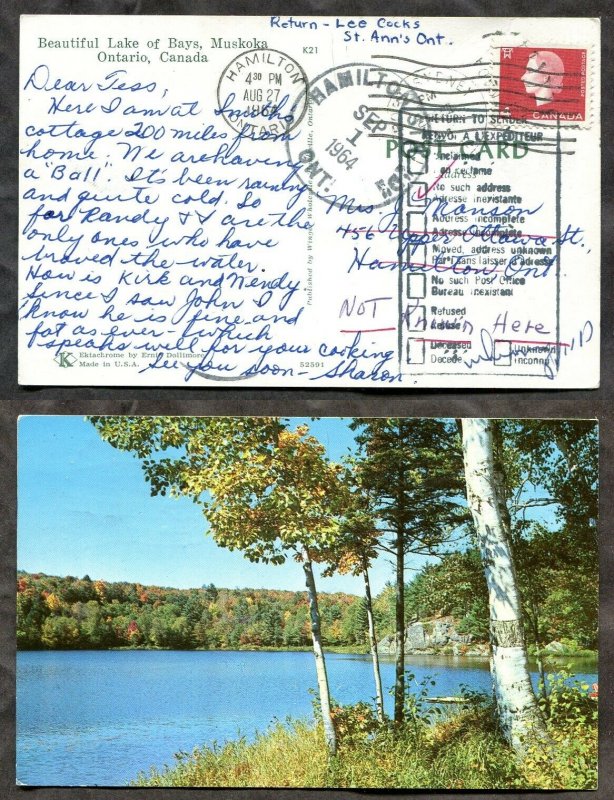 Return - Lee Cocks
St. Ann's Ont.
Beautiful Lake of Bays, Muskoka
Ontario, Canada
K21
HAMILTON
4 30 PM
AUG 27
1964
ONTARIO
HAMILTON
SEP
1
1964
ONT.
CANADA
POST CARD
Address
Dear Tess,
Here I am at Smiths
cottage 200 miles from
home. We are having
a "Ball". It's been raining
and quite cold. So
far Randy & I are the
only ones who have
braved the water.
How is Kirk and Wendy.
Since I saw John I
know he is fine and
fat as ever - which
speaks will for your cooking
See you soon - Sharon.
Mrs J.
456 Upper St.
Hamilton Ont.
NOT Known Here
RETURN TO SENDER
RENVOI A L'EXPEDITEUR
Unclaimed
Non reclame
No such address
Adresse inexistante
Address incomplete
Adresse incomplete
Moved, address unknown
Parti sans laisser d'adresse
No such Post Office
Bureau inexistant
Refused
Refuse
Deceased
Decede
Unknown
Inconnu
Published by
K
Ektachrome by Ernie Dollimore
Made in U.S.A.
52591